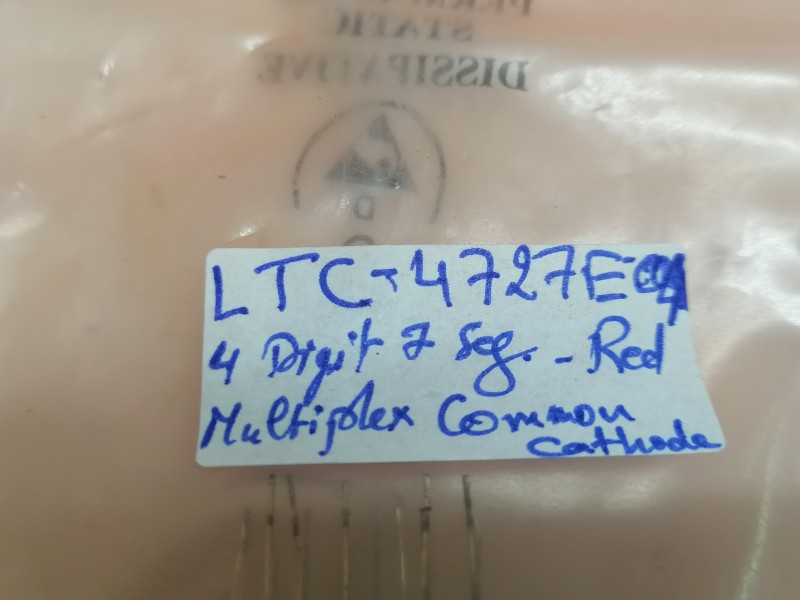 STATIC
DISSIPATIVE
LTC-4727E
4 Digit 7 Seg. - Red
Multiplex Common
Cathode